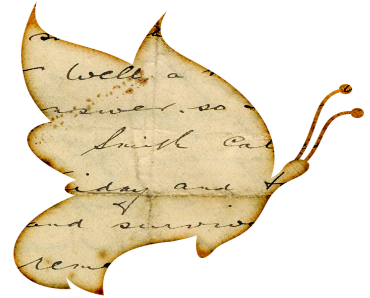 Well a
answer. so
Smith Cal
iday and t
and surviv
reme